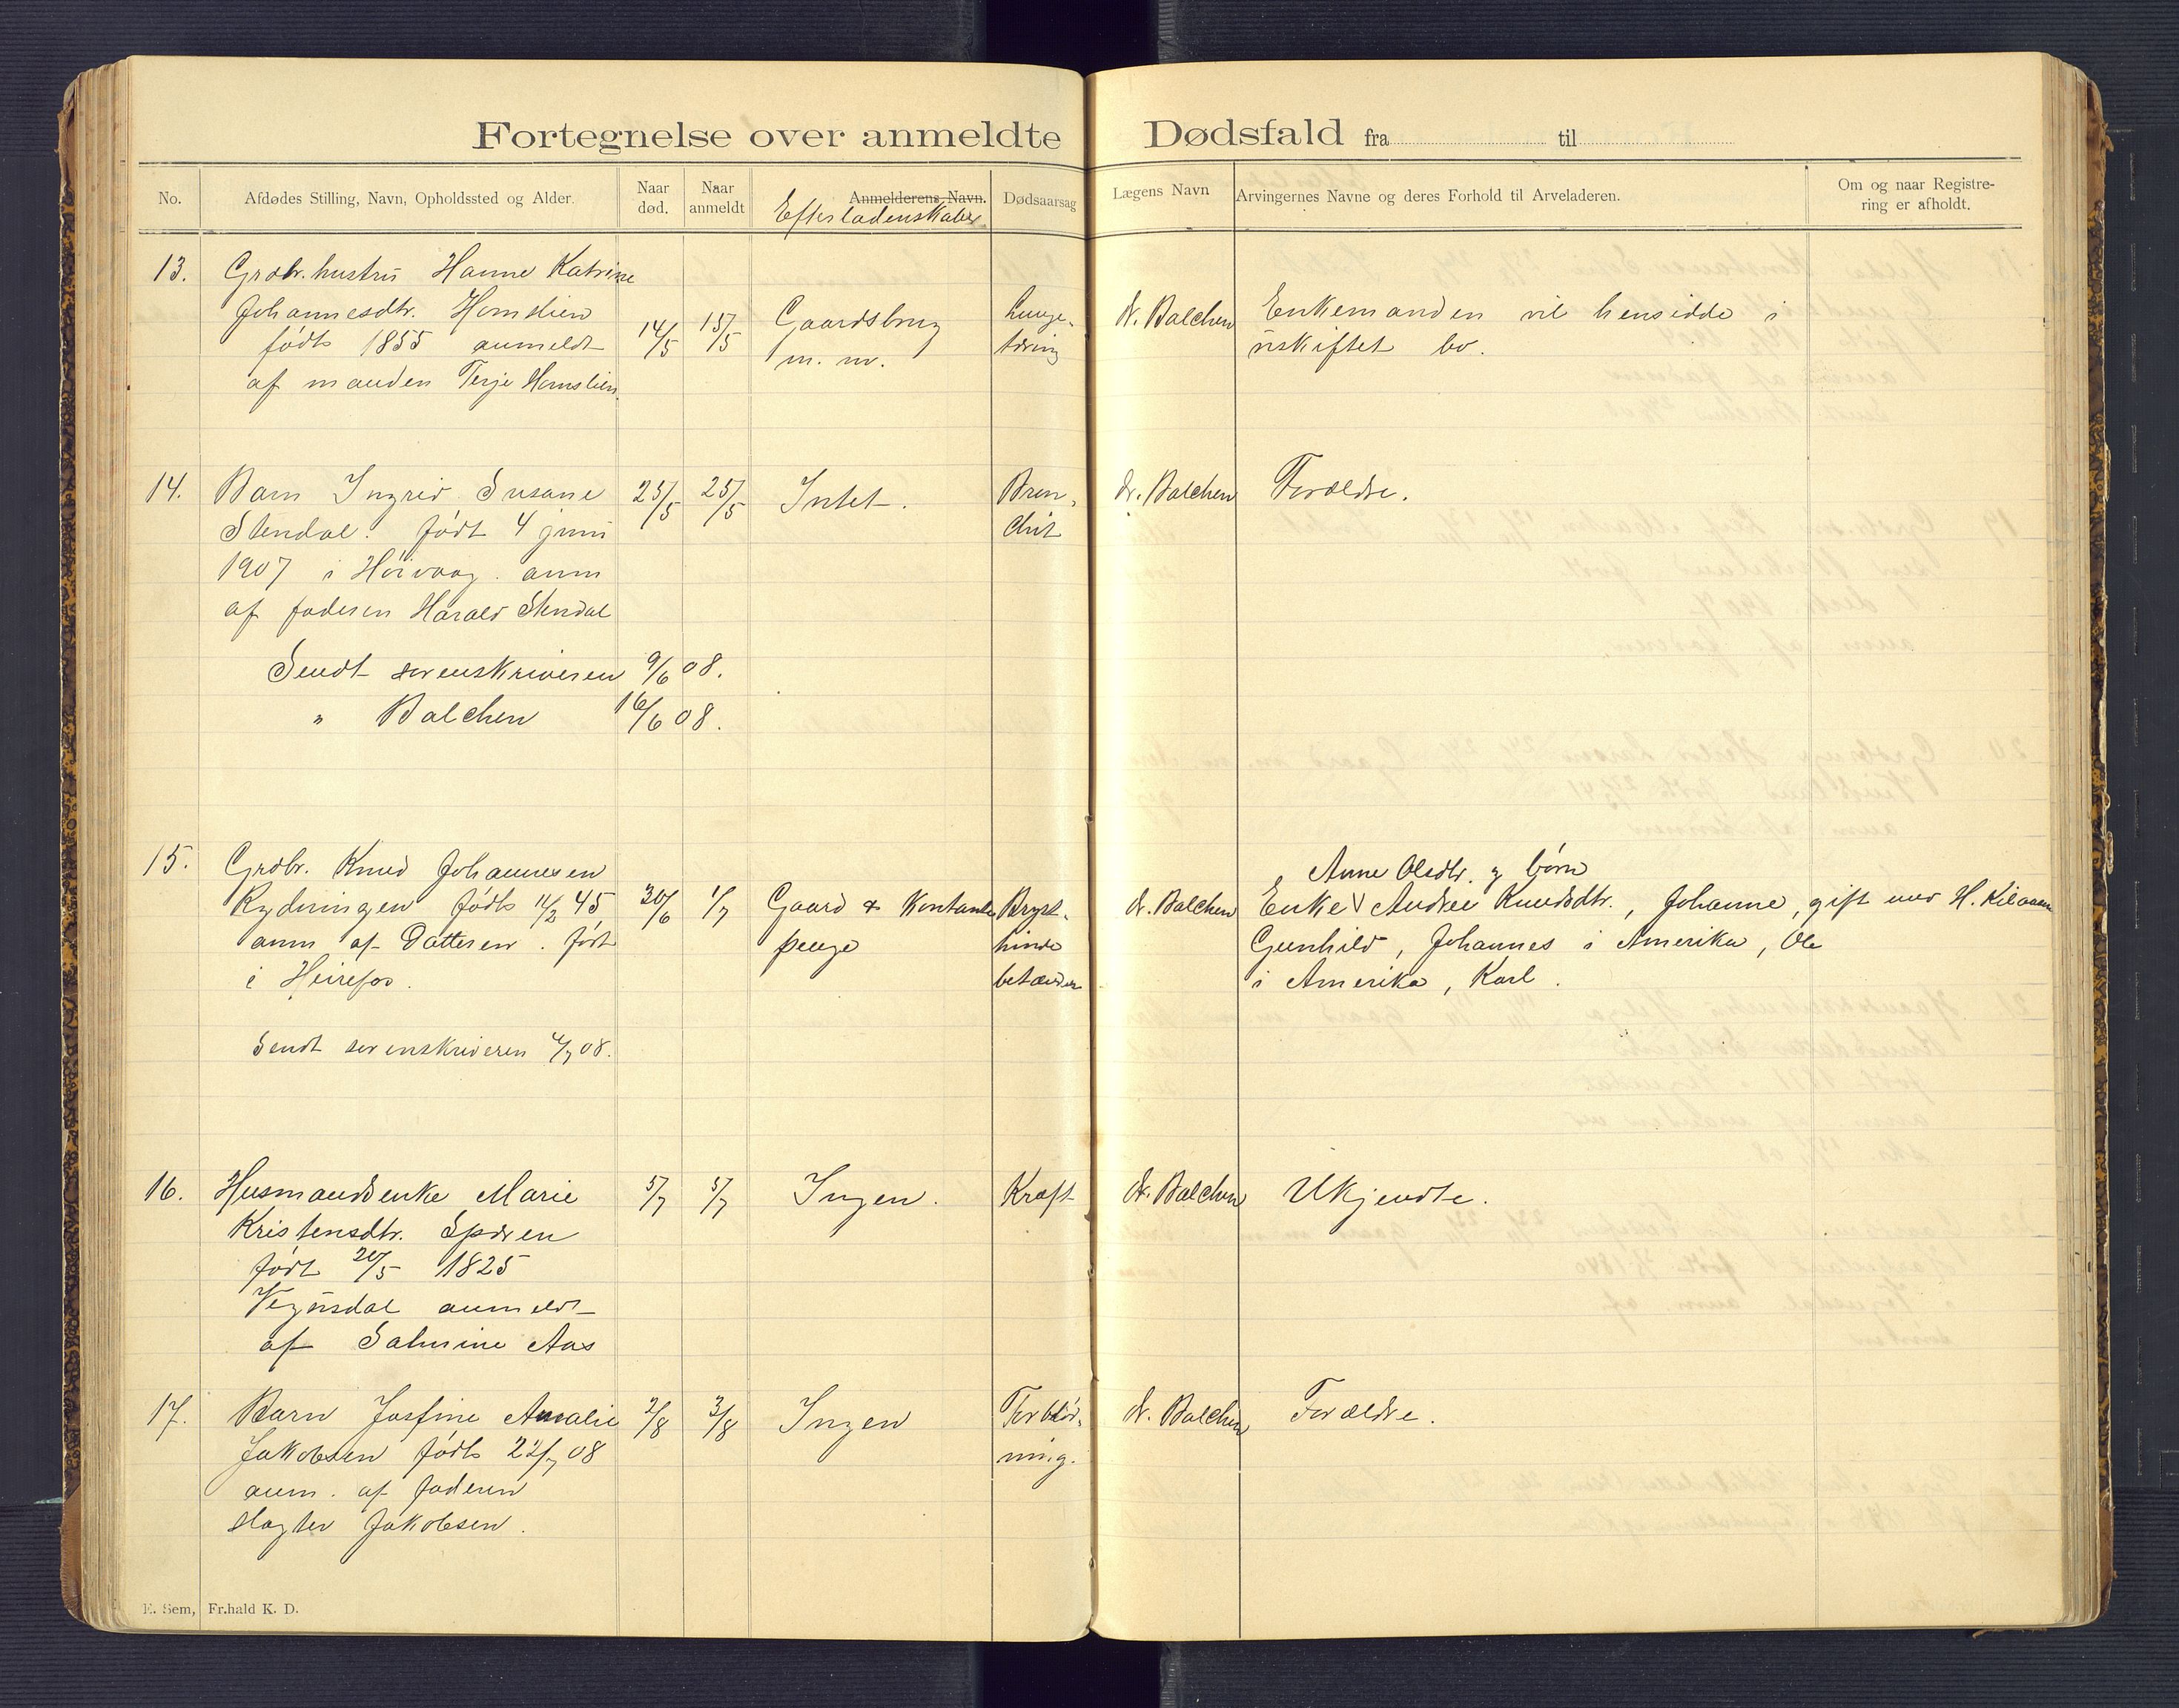 Fortegnelse over anmeldte Dødsfald fra til
No. Afdødes Stilling, Navn, Opholdssted og Alder. Naar død. Naar anmeldt Anmelderens Navn. Efterladenskaber Dødsaarsag Lægens Navn Arvingernes Navne og deres Forhold til Arveladeren. Om og naar Registrering er afholdt.
13. Grdbr. hustru Hanne Katrine
Johannesdtr. Homslien 14/5 15/5 Gaardsbrug Lunge- dr. Balchen Enkemanden vil hensidde i
født 1855 anmeldt m. m. tæring uskiftet bo.
af manden Terje Homslien.
14. Barn Ingrid Susane 25/5 25/5 Intet. Bron- dr. Balchen Forældre.
Stendal. født 4 juni chit
1907 i Høivaag. anm
af faderen Harald Stendal
Sendt sorenskriveren 9/6 08.
" Balchen 16/6 08.
15. Grdbr. Knud Johannesen Anne Olsdtr. og børn
Rydningen født 11/2 45, 30/6 1/7 Gaard & Kontante Bryst- dr. Balchen Enke V Andrea Knudsdtr., Johanne, gift med H.
anm af Datteren. født penge hinde Gunhild, Johannes i Amerika, Ole
i Heirefos. betændelse i Amerika, Karl.
Sendt sorenskriveren 4/7 08.
16. Husmandsenke Marie 5/7 5/7 Ingen. Kræft dr. Balchen Ukjendte.
Kristensdtr.
født 20/5 1825
Vegusdal anmeldt
af Salmine Aas
17. Barn Josfine Amalie 2/8 3/8 Ingen Forblød- dr. Balchen Forældre.
Jakobsen født 22/7 08 ning.
anm. af faderen
slagter Jakobsen.
E. Sem, Fr.hald K. D.